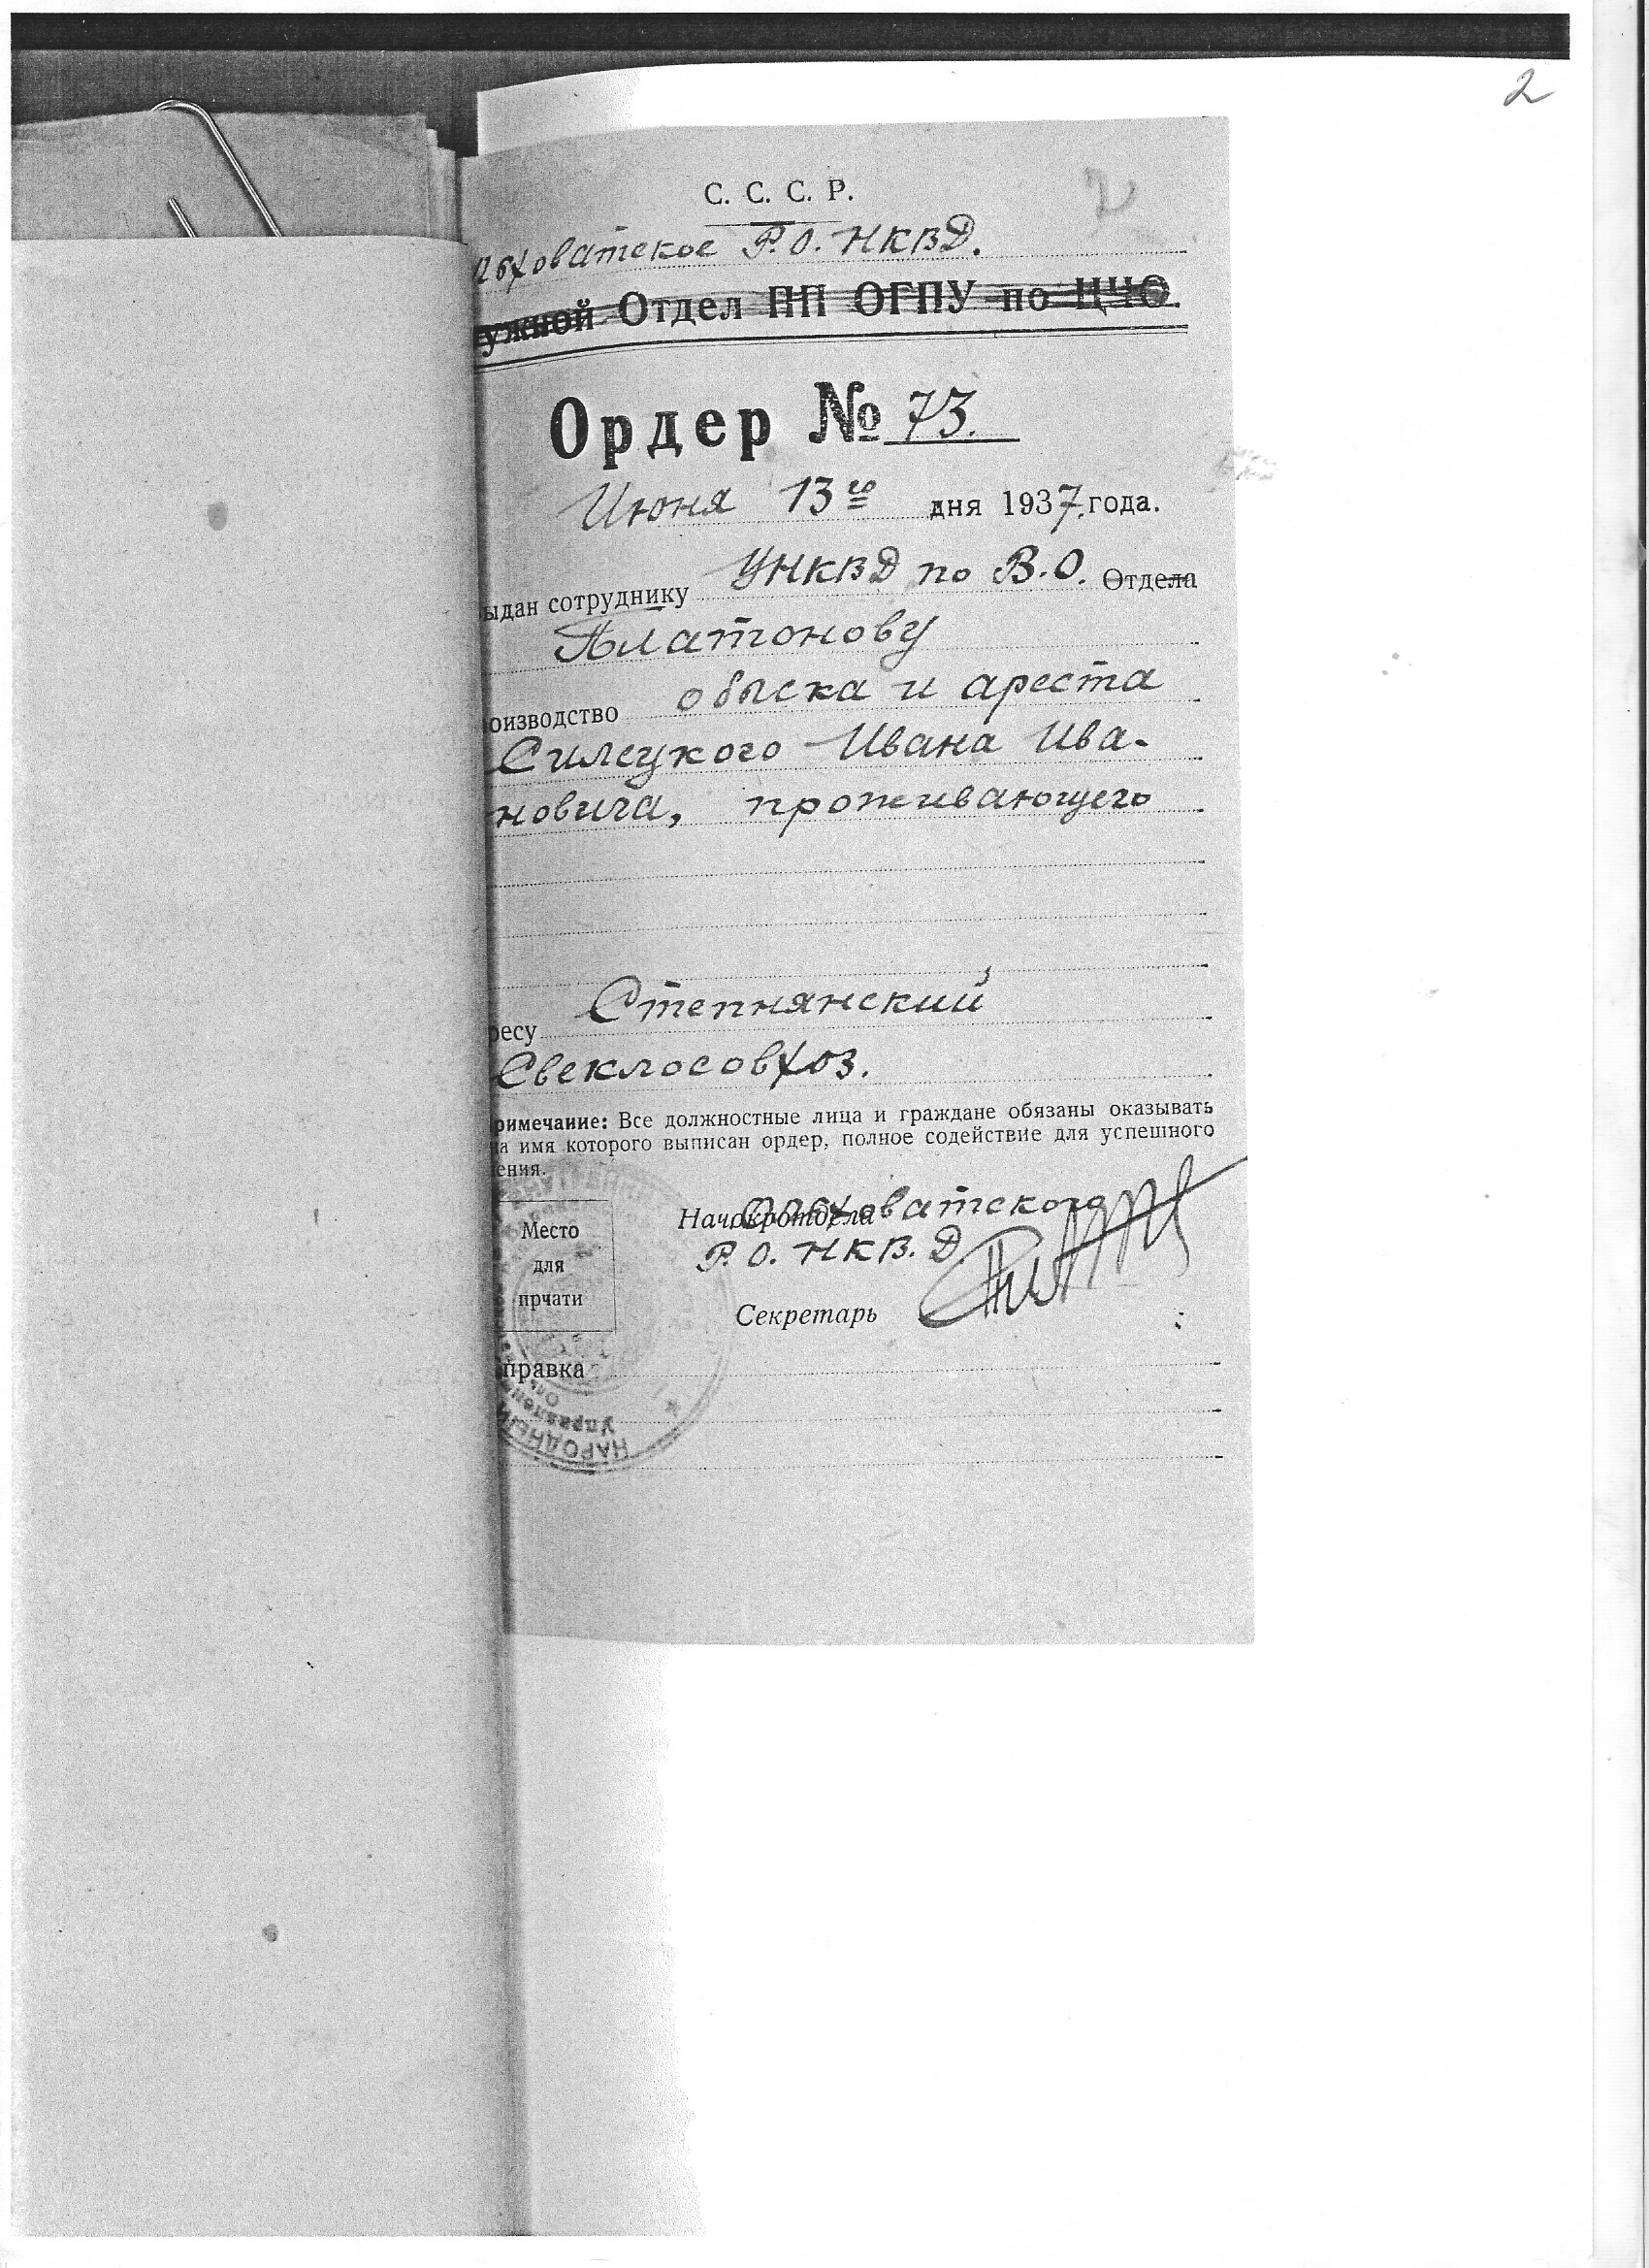 2
2
С. С. С. Р.
льховатское Р.О. НКВД.
ужной Отдел ПП ОГПУ по ЦЧО.
Ордер № 73.
Июня 13го дня 1937 года.
ыдан сотруднику УНКВД по В.О. Отдела
Платонову
оизводство обыска и ареста
Силецкого Ивана Ива-
новича, проживающего
ресу Степнянский
Свеклосовхоз.
римечание: Все должностные лица и граждане обязаны оказывать
на имя которого выписан ордер, полное содействие для успешного
ения.
Место
для
прчати
Начокротдела Ольховатского
Р.О. НКВ.Д.
Секретарь
правка
НАРОДНЫЙ
Управлени